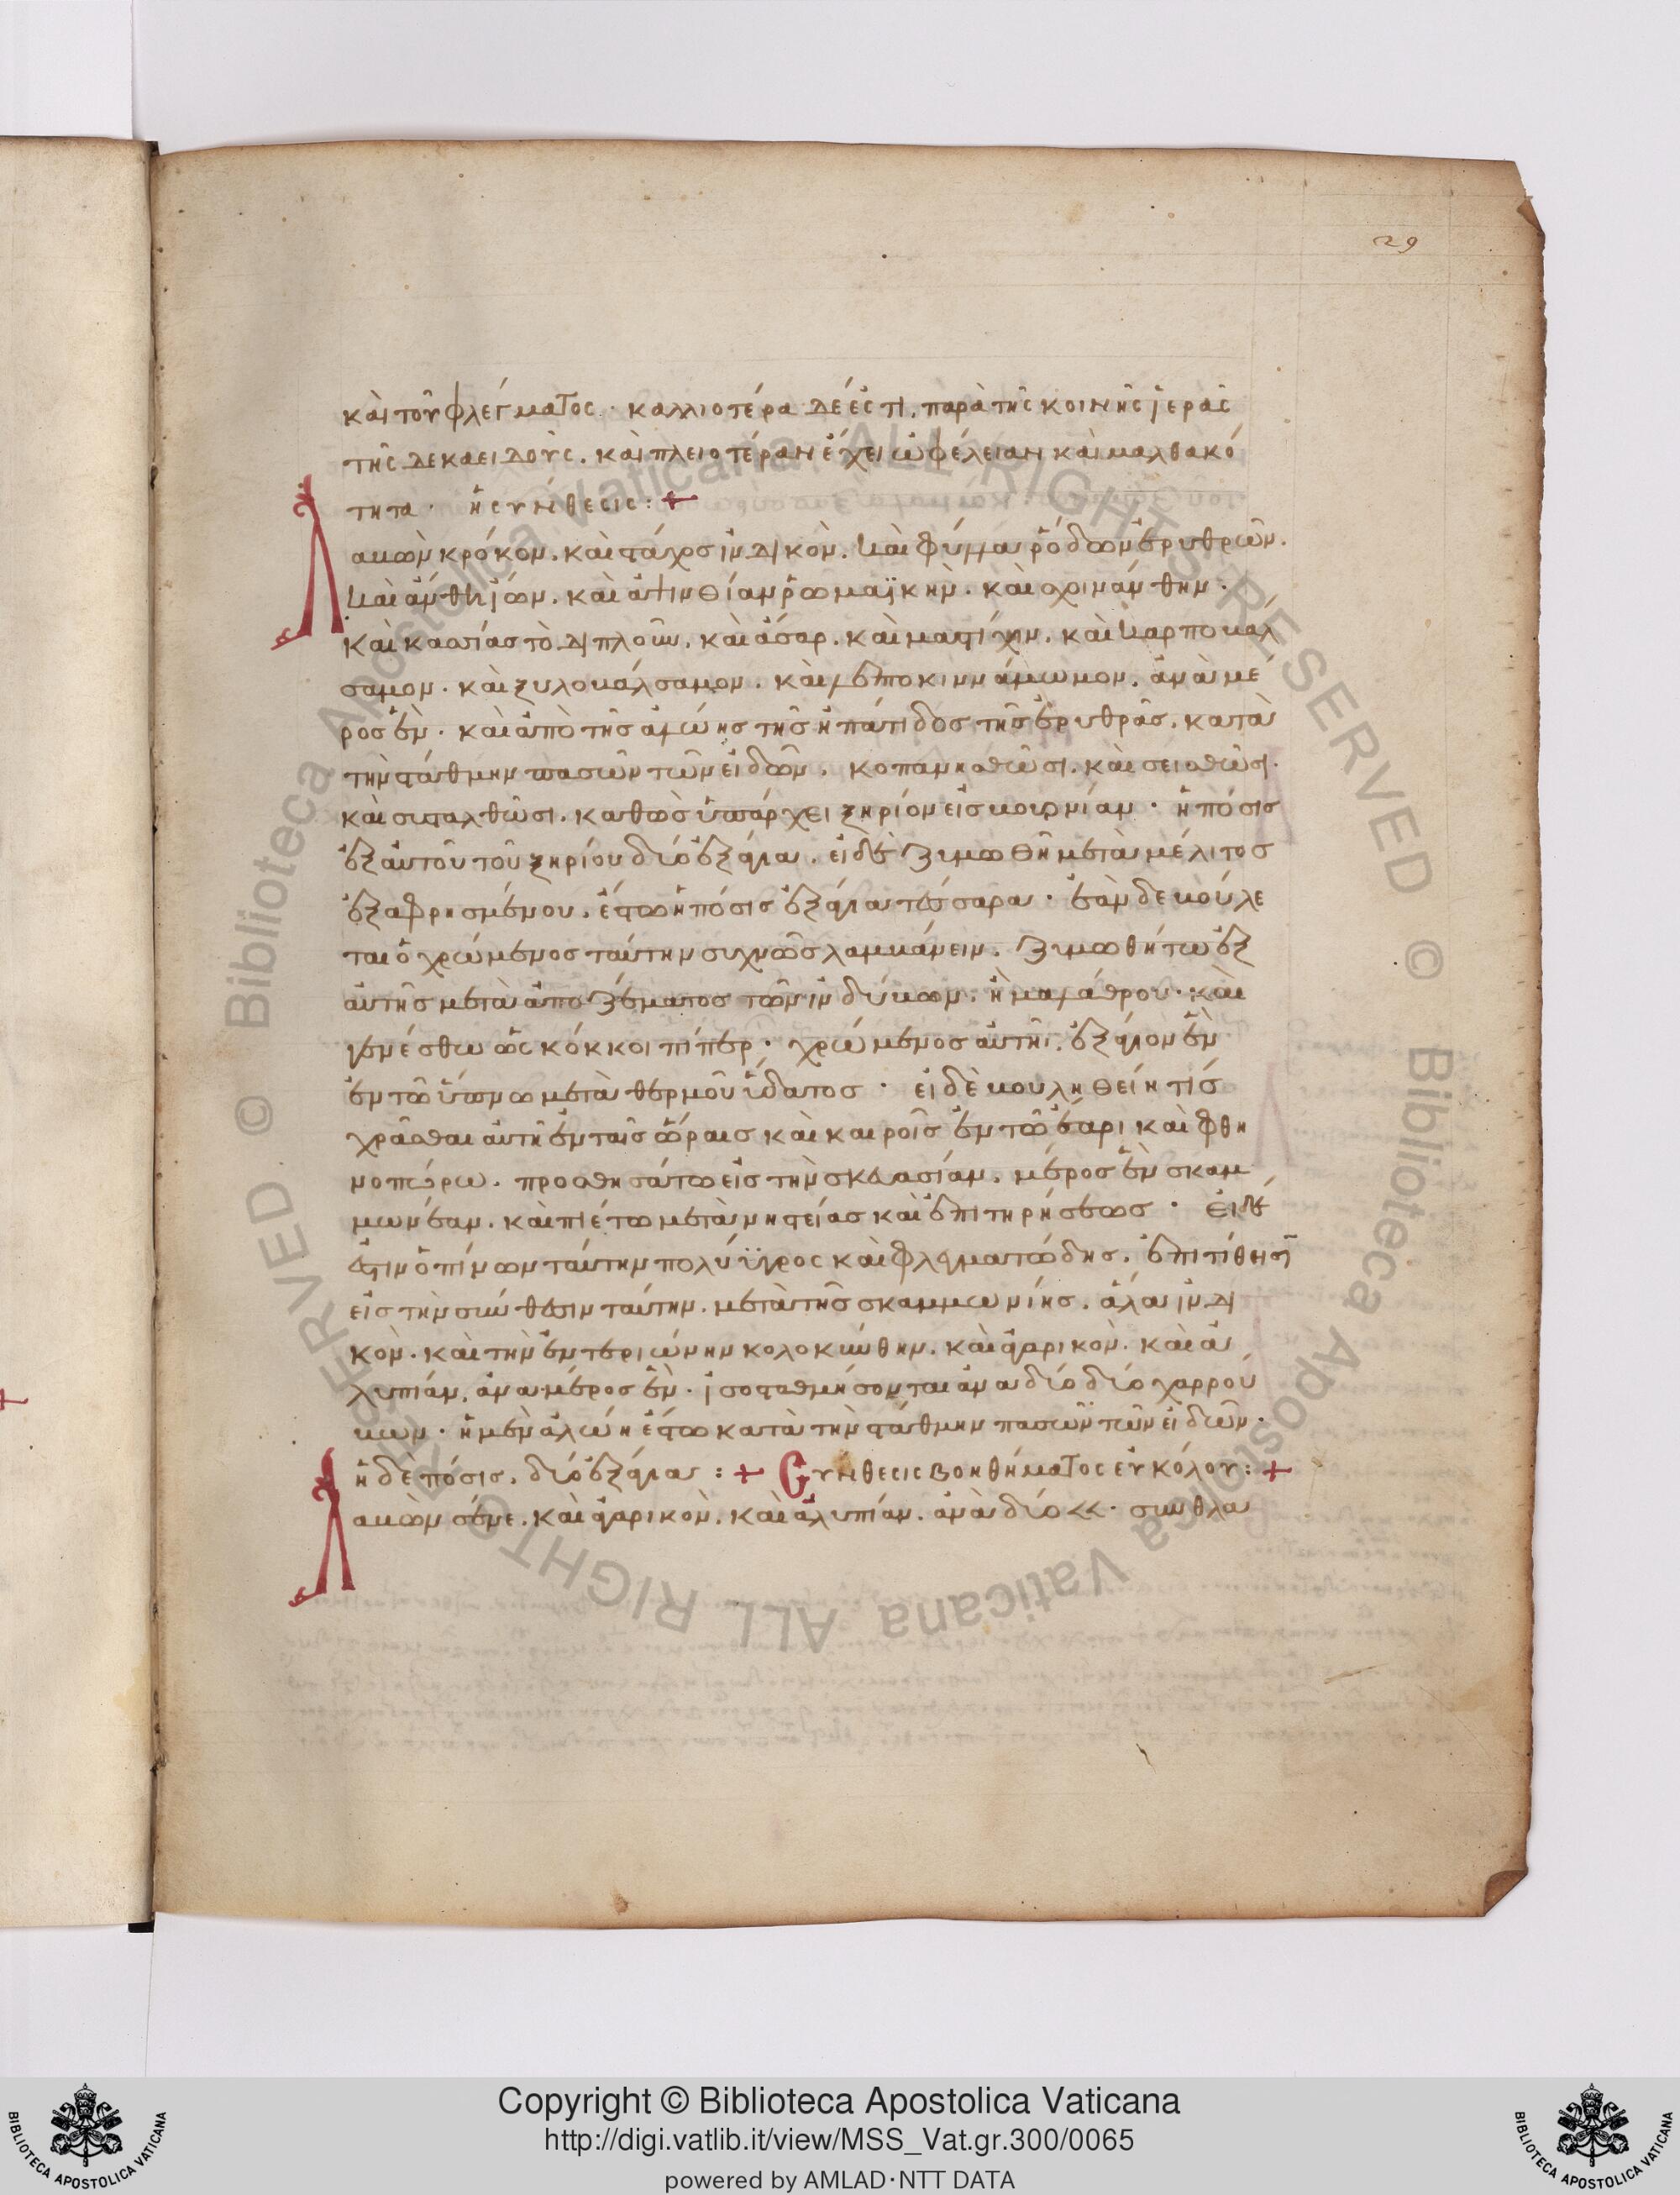 29
καὶ τοῦ φλέγματος · καλλιοτέρα δέ ἐστι, παρὰ τῆς κοινῆς ἱερᾶς
τῆς δεκαειδοῦς. καὶ πλειοτέραν ἔχει ὠφέλειαν καὶ μαλθακό
τητα · ἡ σύνθεσις : +
Λ
αμβὼν κρόκον. καὶ στάχος ἰνδικόν. καὶ φύλλα ῥόδων ἐρυθρῶν.
καὶ ἄνθη ἴων. καὶ ἀψινθίαν ῥωμαϊκὴν. καὶ σχινάνθην ·
καὶ κασίας τὸ διπλοῦν. καὶ ἄσαρ. καὶ μαστίχην. καὶ καρποβάλ
σαμον · καὶ ξυλοβάλσαμον. καὶ ἄμωμον. ἀνὰ μέ
ρος ἓν · καὶ ἀπὸ τῆς ἀλώης τῆς ἡπάτιδος τῆς ἐρυθρᾶς. κατὰ
τὴν στάθμην πασῶν τῶν εἰδῶν. κοπανησθῶσι. καὶ σεισθῶσι.
καὶ συσταλθῶσι. καθὼς ὑπάρχει ξηρίον εἰς κονρνίαν · ἡ πόσις
ἐξ αὐτοῦ τοῦ ξηρίου δύο ἐξάγια. εἰ δὲ ζυμωθῆ μετὰ μέλιτος
ἐξαφρησμένου. ἔστω ἡ πόσις ἐξάγια τέσσαρα · ἐὰν δὲ βούλε
ται ὁ χρώμενος ταύτην συχνῶς λαμβάνειν. ζυμωθήτω ἐξ
αὐτῆς μετὰ ἀποζέματος τῶν ἰνδύβων. ἢ μαράθρου · καὶ
γενέσθω ὡς κόκκοι πίπερ · χρώμενος αὐτῆ. ἐξάγιον ἓν
ἐν τῶ ὕπνω μετὰ θερμοῦ ὕδατος · εἰ δὲ βουληθείη τίς
χρᾶσθαι αὐτῆ ἐν ταῖς ὥραις καὶ καιροῖς ἐν τῶ ἔαρι καὶ φθη
νοπώρω. προσθησάτω εἰς τὴν σκευασίαν. μέρος ἓν σκαμ
μωνέαν. καὶ πιέτω μετὰ νηστείας καὶ ἐπιτηρήσεως · εἰ δέ
ἐστιν ὁ πίνων ταύτην πολύϋγρος καὶ φλεγματώδης. ἐπιτίθεισι
εἰς τὴν σύνθεσιν ταύτην. μετὰ τῆς σκαμμωνίης. ἅλα ἰνδι
κὸν · καὶ τὴν ἐντεριώνην κολοκύνθην. καὶ ἀγαρικὸν. καὶ ἀ
λυπίαν. ἀνὰ μέρος ἓν · ἰσοσταθμήσονται ἀνὰ δύο δύο χαρρού
βων · ἡ μὲν ἀλώη ἔστω κατὰ τὴν στάθμην πασῶν τῶν εἰδῶν ·
ἡ δὲ πόσις. δύο ἐξάγια : + Σύνθεσις βοηθήματος εὐκόλου : +
Λ
αμβὼν σένε. καὶ ἀγαρικὸν. καὶ ἀλυπίαν. ἀνὰ δύο << · συνθλα
Copyright © Biblioteca Apostolica Vaticana
http://digi.vatlib.it/view/MSS_Vat.gr.300/0065
powered by AMLAD·NTT DATA
BIBLIOTECA APOSTOLICA VATICANA
BIBLIOTECA APOSTOLICA VATICANA
© Biblioteca Apostolica Vaticana ALL RIGHTS RESERVED © Biblioteca Apostolica Vaticana ALL RIGHTS RESERVED